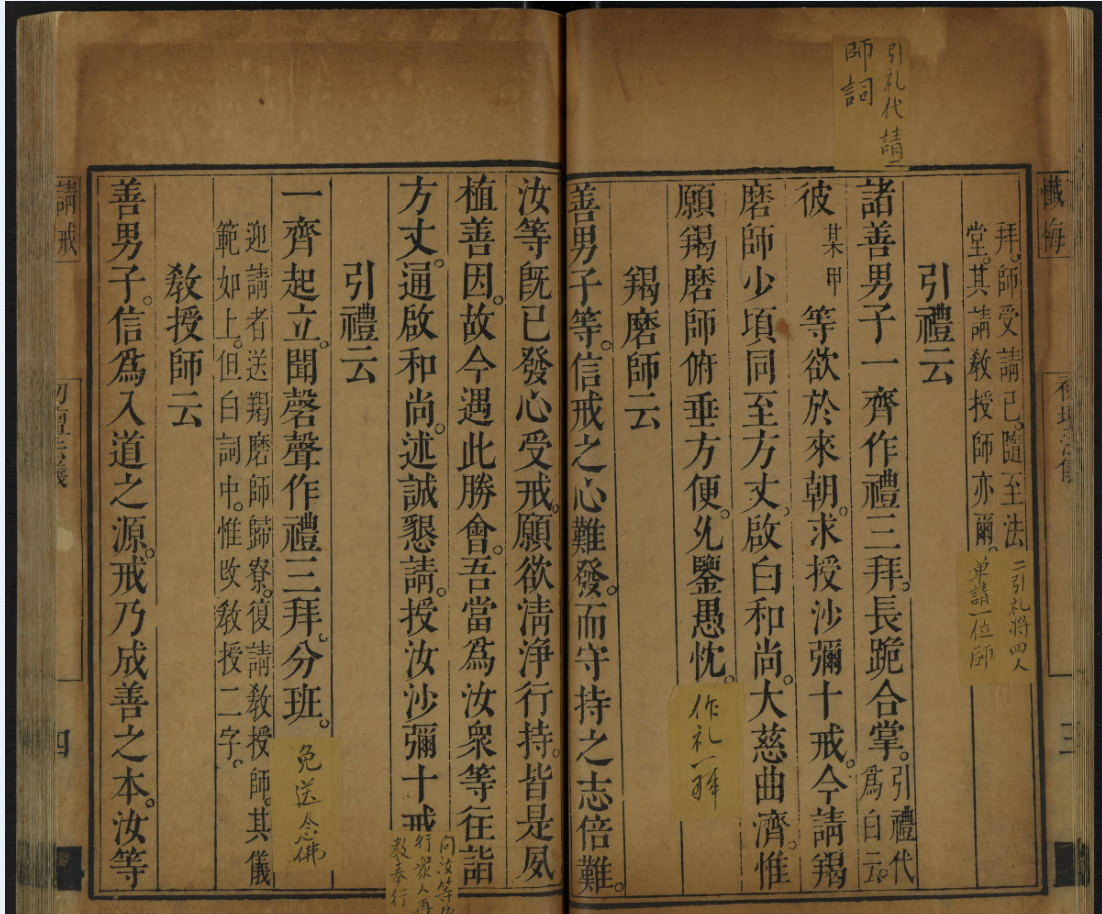 懺悔
初壇法儀
三
引礼代請二
師詞
拜。師受請已。隨至法
堂。其請教授師亦爾。
二引礼將四人
東請一位師
引禮云
諸善男子一齊作禮三拜。長跪合掌。引禮代
爲白云。
彼某甲等欲於來朝。求授沙彌十戒。今請羯
磨師少頃同至方丈。啟白和尚。大慈曲濟。惟
願羯磨師俯垂方便。允鑒愚忱。
作礼一拜
羯磨師云
善男子等。信戒之心難發。而守持之志倍難。
汝等旣已發心受戒。願欲清淨行持。皆是夙
植善因。故今遇此勝會。吾當爲汝衆等往詣
方丈。通啟和尚。述誠懇請。授汝沙彌十戒
問汝等
行衆人再
教奉行
引禮云
一齊起立。聞磬聲作禮三拜。分班。
免送念佛
迎請者送羯磨師歸寮。復請教授師。其儀
範如上。但白詞中。惟改教授二字。
教授師云
善男子。信爲入道之源。戒乃成善之本。汝等
請戒
初壇法儀
四